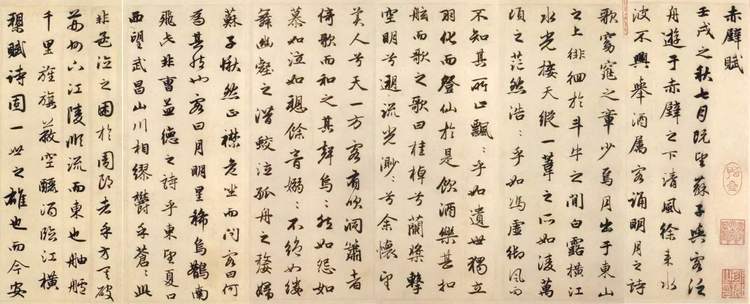 赤壁賦
壬戌之秋七月既望蘇子與客泛
舟遊于赤壁之下清風徐來水
波不興舉酒属客誦明月之詩
歌窈窕之章少焉月出于東山
之上徘徊於斗牛之間白露橫江
水光接天縱一葦之所如凌萬
頃之茫然浩〻乎如馮虛御風而
不知其所止飄〻乎如遺世獨立
羽化而登仙於是飲酒樂甚扣
舷而歌之歌曰桂棹兮蘭槳擊
空明兮溯流光渺〻兮余懷望
美人兮天一方客有吹洞簫者
倚歌而和之其聲嗚〻然如怨如
慕如泣如訴餘音嫋〻不絕如縷
舞幽壑之潛蛟泣孤舟之嫠婦
蘇子愀然正襟危坐而問客曰何
為其然也客曰月明星稀烏鵲南
飛此非曹孟德之詩乎東望夏口
西望武昌山川相繆鬱乎蒼〻此
非孟德之困於周郎者乎方其破
荊州下江陵順流而東也舳艫
千里旌旗蔽空釃酒臨江橫
槊賦詩固一世之雄也而今安